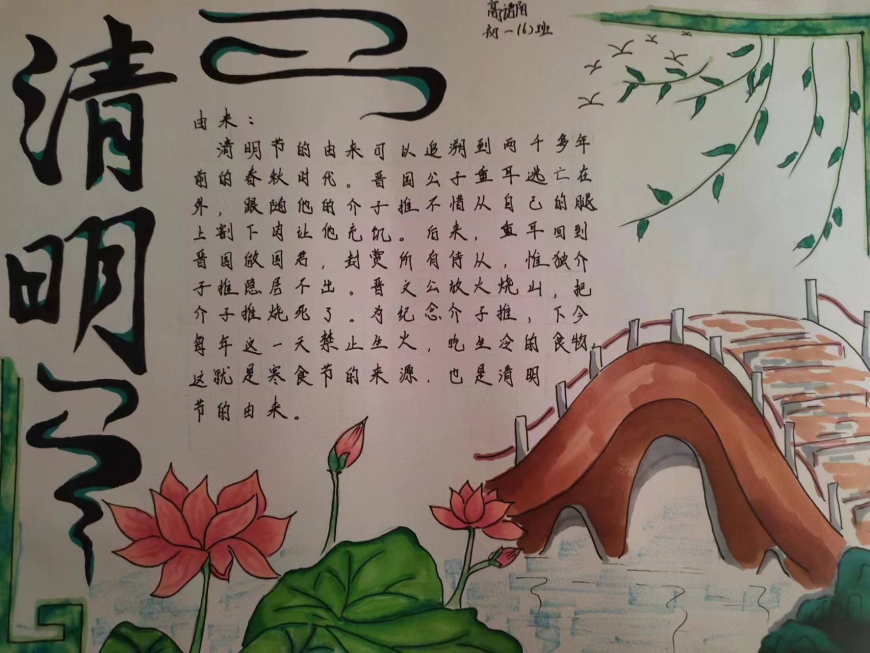 清明节
初一(6)班
由来：
清明节的由来可以追溯到两千多年
前的春秋时代。晋国公子重耳逃亡在
外，跟随他的介子推不惜从自己的腿
上割下肉让他充饥。后来，重耳回到
晋国做国君，封赏所有侍从，惟独介
子推隐居不出。晋文公放火烧山，把
介子推烧死了。为纪念介子推，下令
每年这一天禁止生火，吃生冷的食物，
这就是寒食节的来源，也是清明
节的由来。